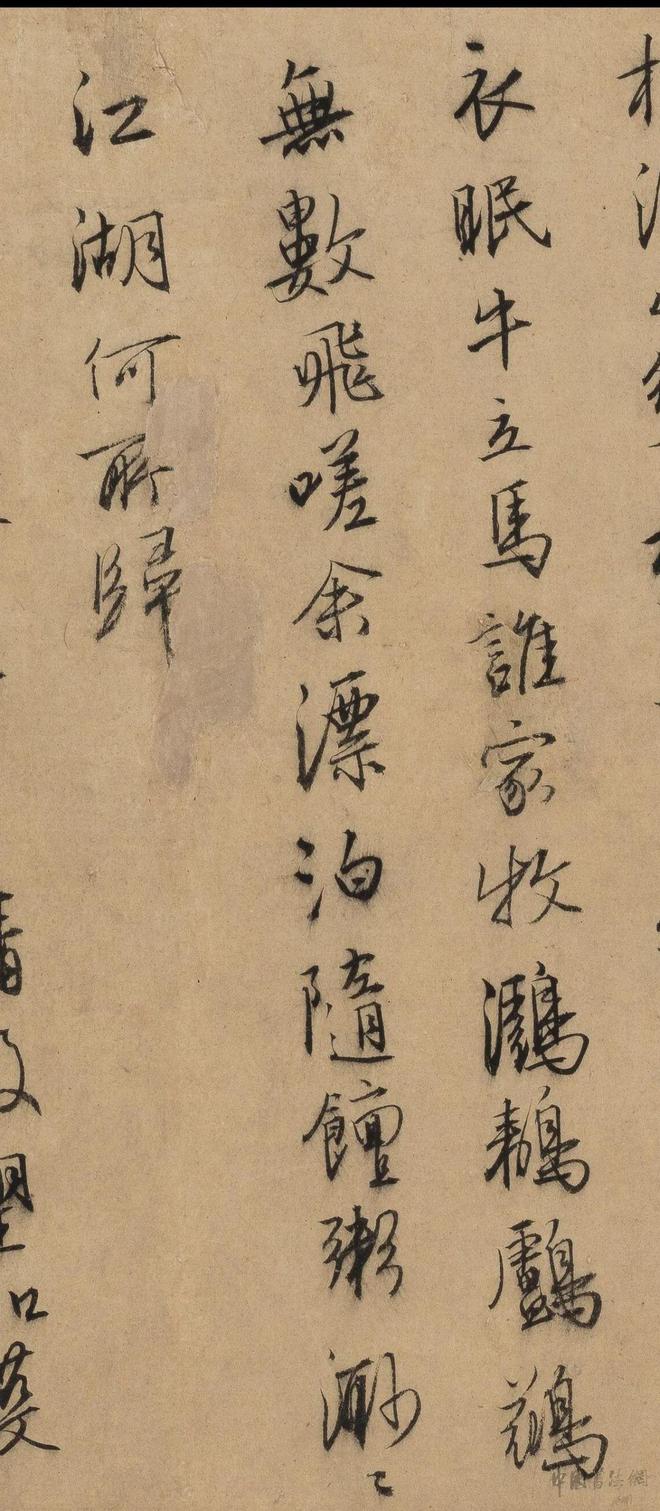 衣眠牛立馬誰家牧鸂鶒鸕鷀
無數飛嗟余漂泊隨饘粥渺々
江湖何所歸
中國書法網